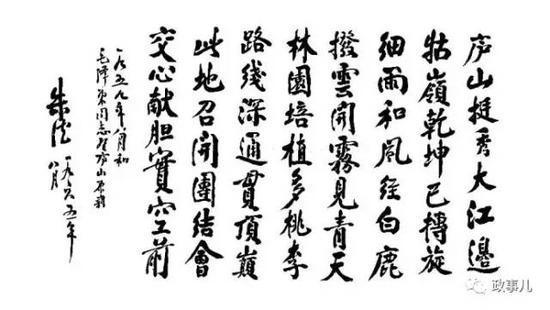 庐山挺秀大江邊
牯嶺乾坤已轉旋
细雨和風經白鹿
撥雲開霧見青天
林園培植多桃李
路线深通貫頂巔
此地召開團結會
交心献胆實空前
一九五九年八月和
毛泽东同志登庐山原韵
朱德 一九六五年
八月
政事儿